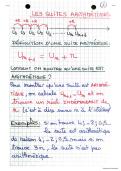 LES SUITES ARITHMÉTIQUES
+r +r +r +r
U₀ U₁ U₂ U₃ U₄ Uₙ Uₙ₊₁
DÉFINITION D'UNE SUITE ARITHMÉTIQUE:
Uₙ₊₁ = Uₙ + r
COMMENT ON MONTRE QU'UNE SUITE EST
ARITHMÉTIQUE ?
Pour montrer qu'une suite est ARITHMÉ-
TIQUE, on calcule Uₙ₊₁ - Uₙ et on
trouve un réel INDÉPENDANT DE
n (c'est à dire
Exemples: si on trouve
la suite est arithmétique
de raison
trouve 3n, la suite n'est pas
arithmétique.